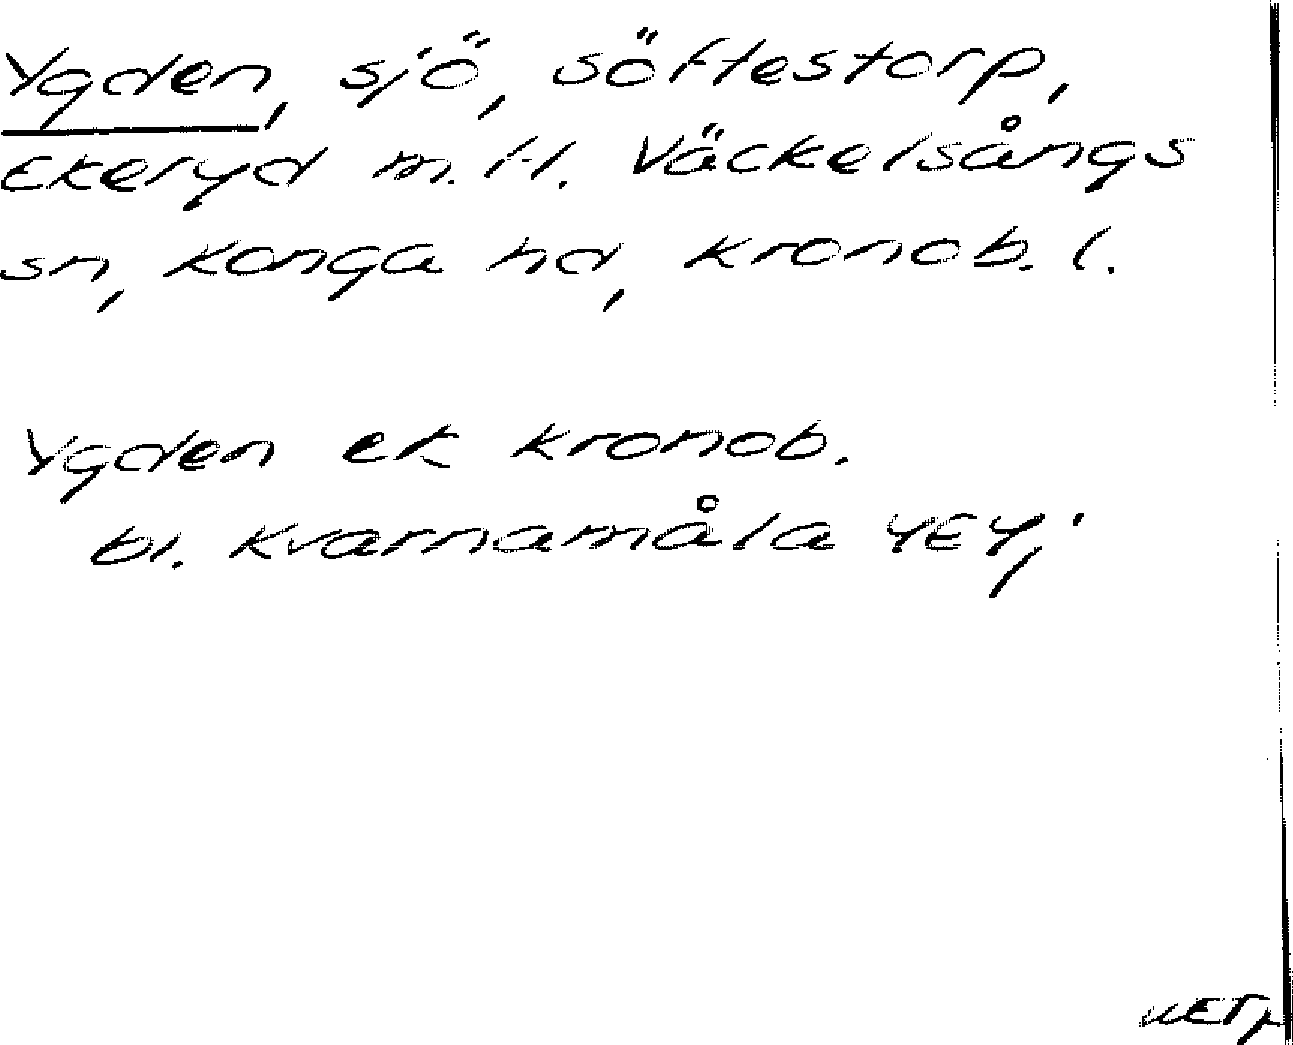 Ygden, sjö, Söftestorp,
Ekeryd m.fl. Väckelsångs
sn, Konga hd, Kronob. l.
Ygden ek Kronob.
bl. Kvarnamåla